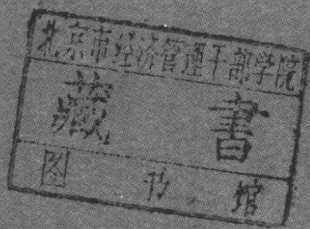 北京市经济管理干部学院
藏 书
图 书 馆